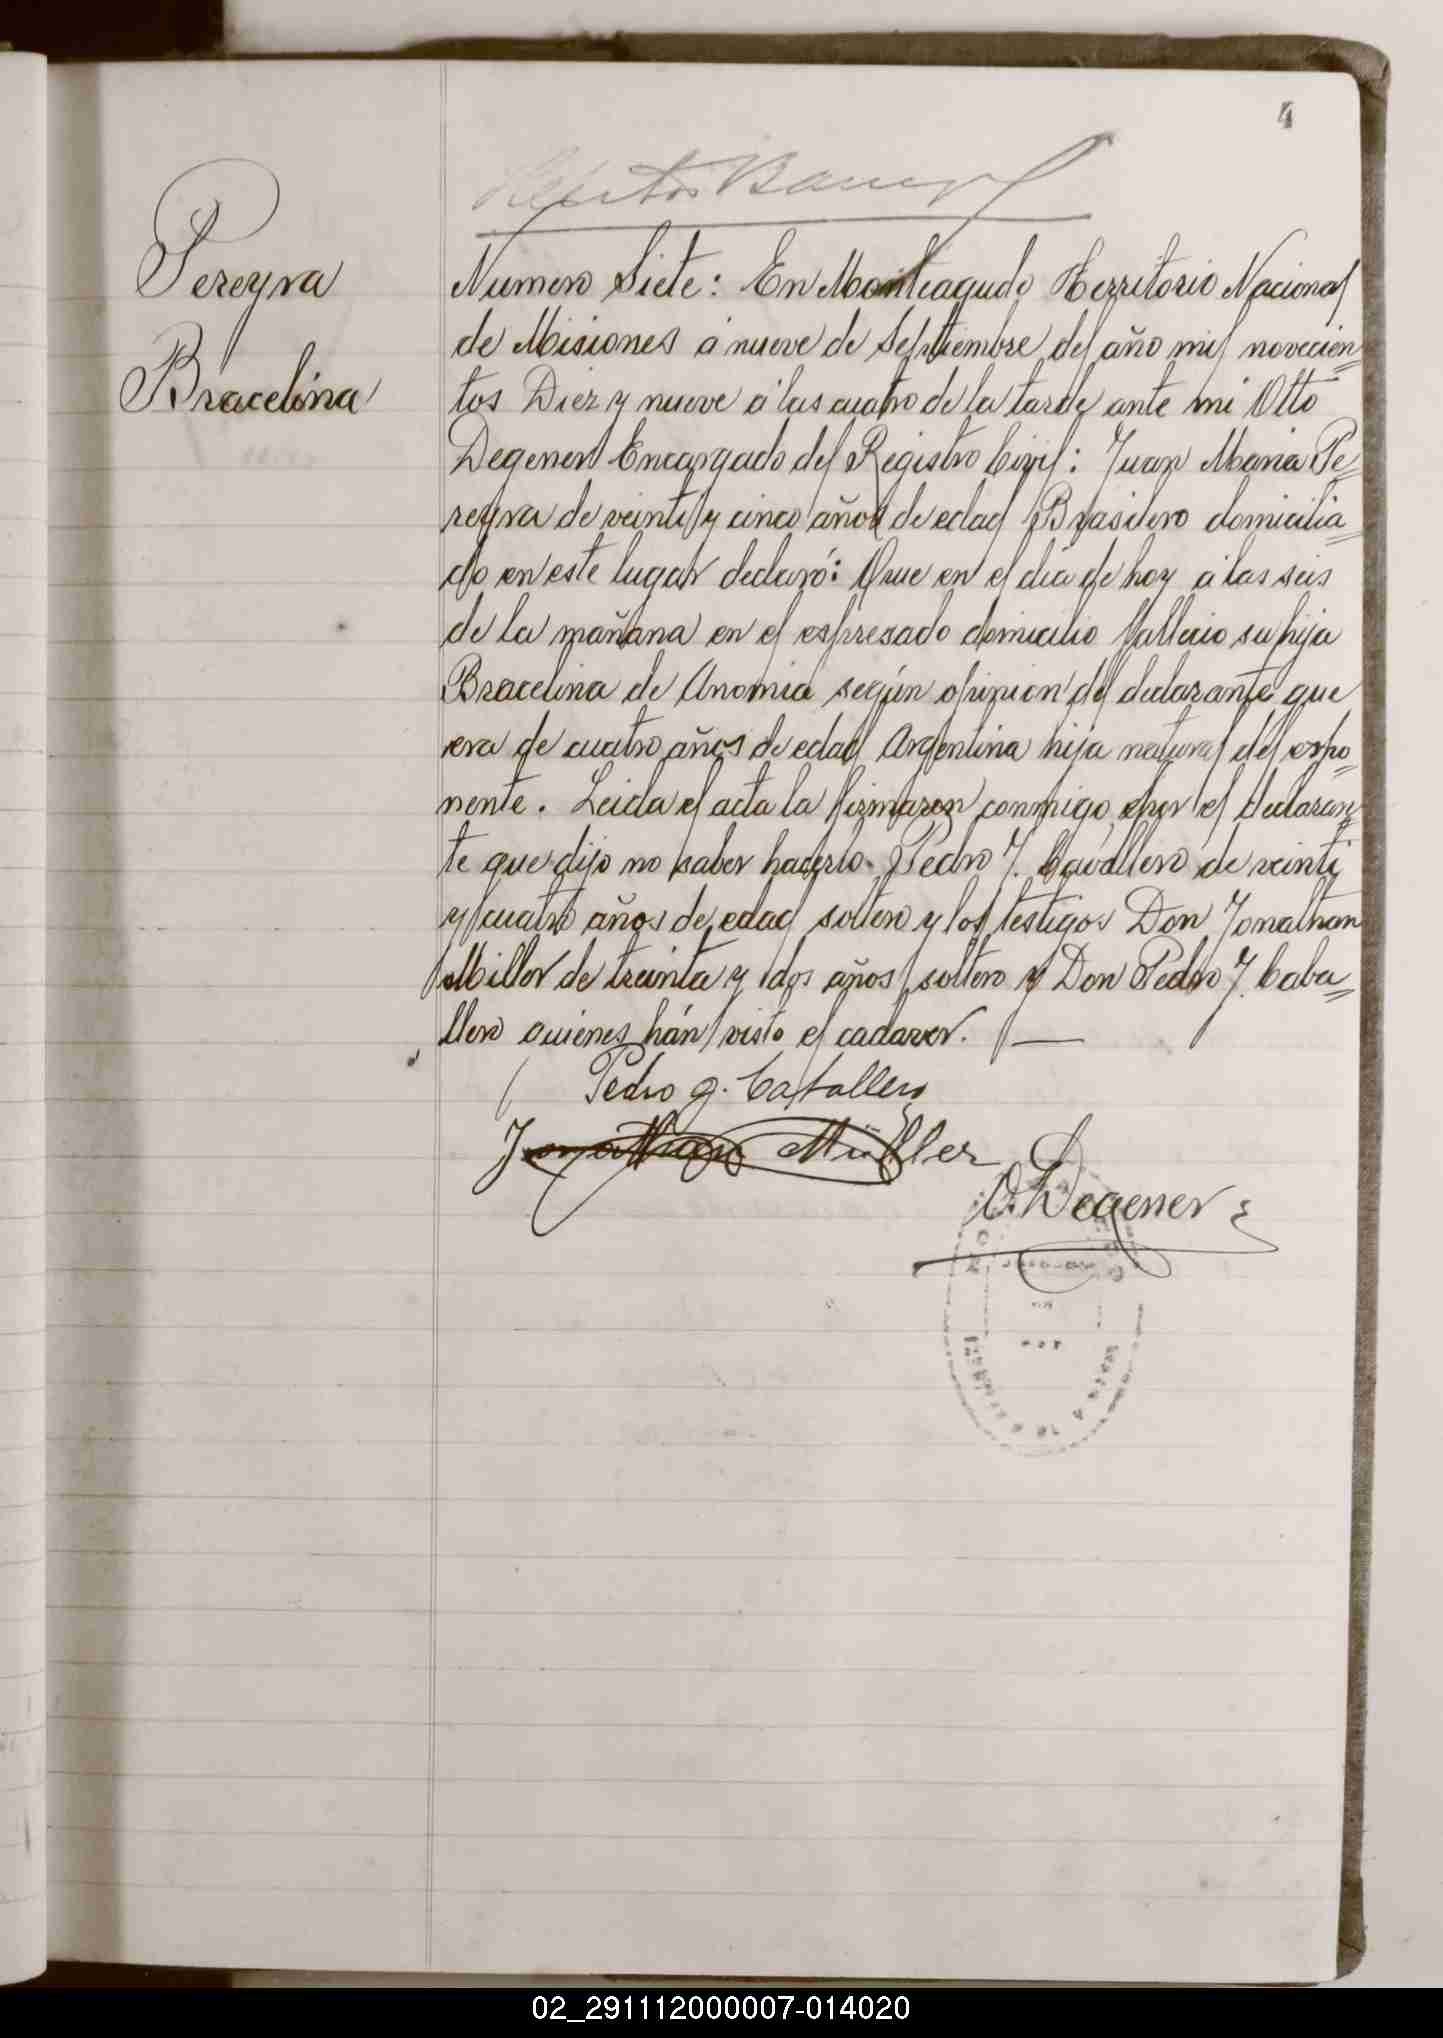 4
Pereyra
Bracelina
Numero Siete: En Monteagudo Territorio Nacional
de Misiones á nueve de Septiembre del año mil novecien=
tos Diez y nueve á las cuatro de la tarde ante mi Otto
Degener Encargado del Registro Civil: Juan Maria Pe=
reyra de veinti y cinco años de edad Brasilero domicilia=
do en este lugar declaró: Que en el dia de hoy á las seis
de la mañana en el espresado domicilio fallecio su hija
Bracelina de Anomia según opinion del declarante que
era de cuatro años de edad Argentina hija natural del espo=
nente. Leida el acta la firmaron conmigo por el declaran=
te que dijo no saber hacerlo Pedro J. Cavallero de veinti
y cuatro años de edad soltero y los testigos Don Jonathan
Miller de treinta y dos años soltero y Don Pedro J. Caba=
llero quienes hán visto el cadaver.
Pedro J. Caballero
Jonathan Müller
O. Degener
02_291112000007-014020